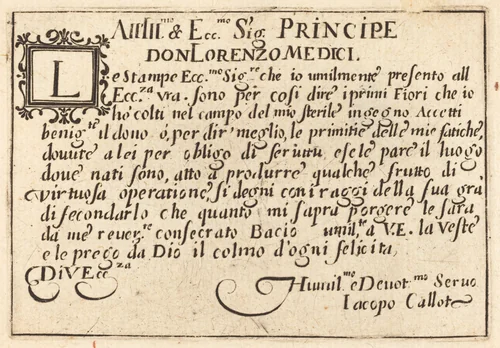 All Ill.mo & Ecc.mo Sig. PRINCIPE
DON LORENZO MEDICI.
Le Stampe Ecc.mo Sig.re che io umilmente presento all
Ecc.za vra. sono per cosi dire i primi Fiori che io
ho colti nel campo del mio sterile ingegno Accetti
benig.te il dono ò, per dir meglio, le primitie delle mie fatiche,
douute a lei per obligo di seruitu, e se le pare il luogo
doue nati sono, atto a produrre qualche frutto di
virtuosa operatione, si degni con i raggi della sua gra.
di fecondarlo che quanto mi sapra porgere le sara
da me reuer.te consecrato Bacio umil.te a V.E. la veste
e le prego da Dio il colmo d'ogni felicita,
Di V Ecc.za
Humil.mo e Deuot.mo Seruo
Iacopo Callot